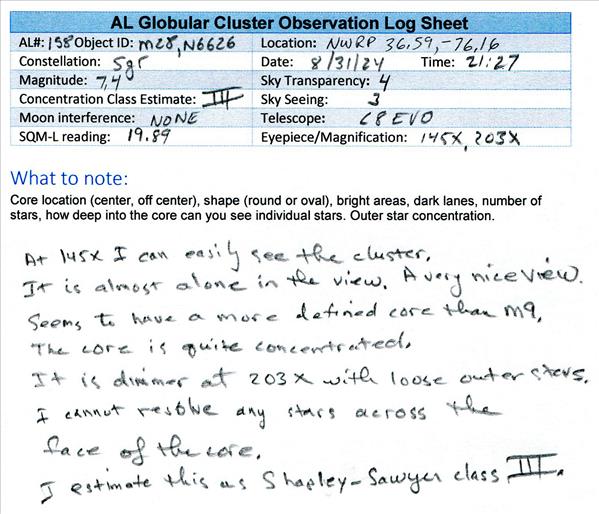 AL Globular Cluster Observation Log Sheet
AL#: 158 Object ID: M28, N6626 Location: NWRP 36.59, -76.16
Constellation: Sgr Date: 8/31/24 Time: 21:27
Magnitude: 7.4 Sky Transparency: 4
Concentration Class Estimate: III Sky Seeing: 3
Moon interference: NONE Telescope: C8 EVO
SQM-L reading: 19.89 Eyepiece/Magnification: 145X, 203X
What to note:
Core location (center, off center), shape (round or oval), bright areas, dark lanes, number of
stars, how deep into the core can you see individual stars. Outer star concentration.
At 145x I can easily see the cluster.
It is almost alone in the view. A very nice view.
Seems to have a more defined core than M9.
The core is quite concentrated.
It is dimmer at 203x with loose outer stars.
I cannot resolve any stars across the
face of the core.
I estimate this as Shapley-Sawyer class III.